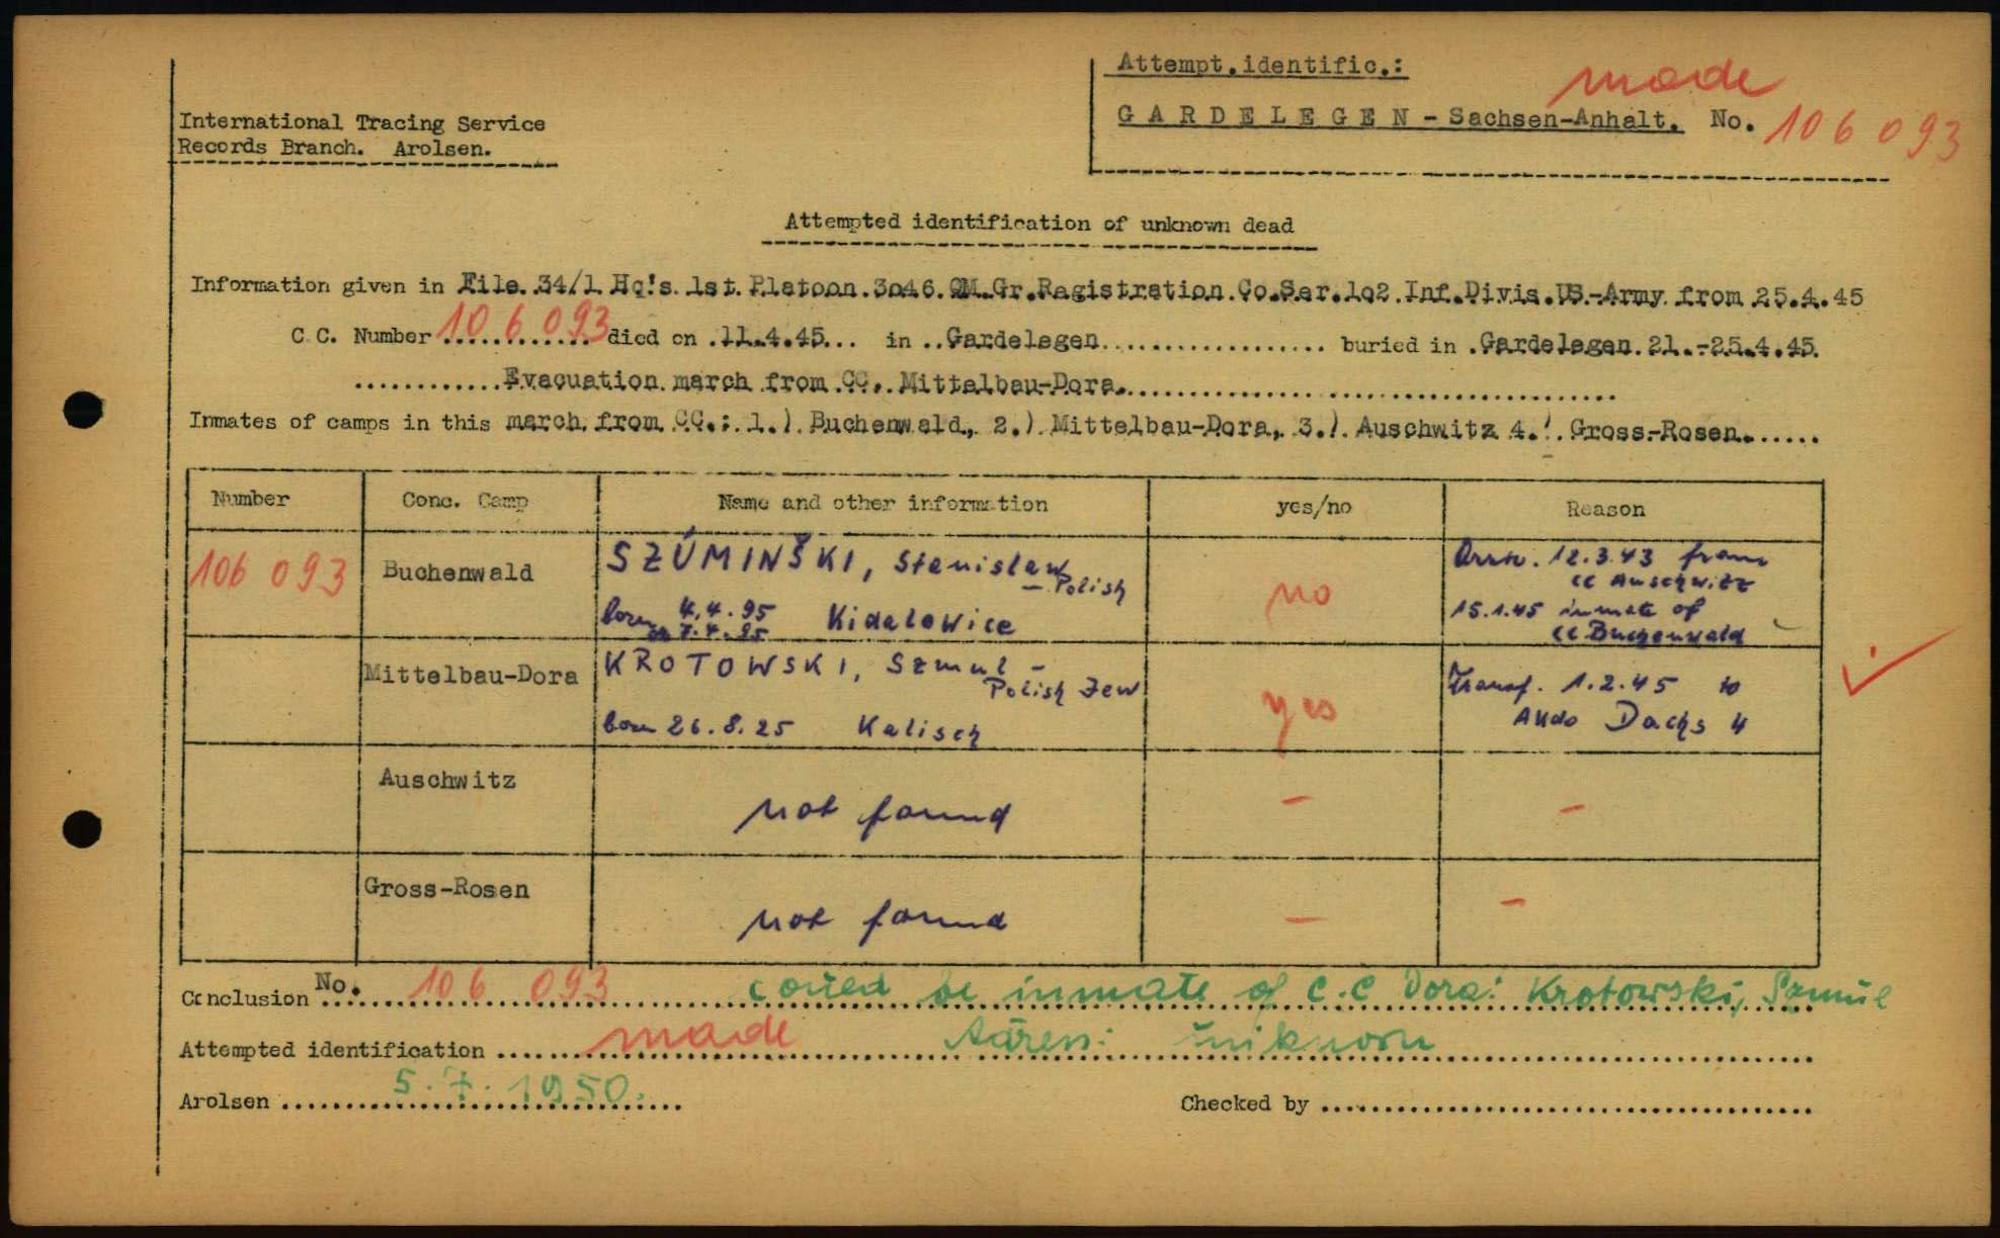 Attempt.identific.:
made
GARDELEGEN - Sachsen-Anhalt. No. 106 093
International Tracing Service
Records Branch. Arolsen.
Attempted identification of unknown dead
Information given in File 34/1 Hq's 1st Platoon 3o46 QM Gr.Ragistration Co.Ser.1o2 Inf.Divis.US-Army from 25.4.45
C.C. Number 106 093 died on 11.4.45 in Gardelegen buried in Gardelegen 21.-25.4.45.
Evacuation march from CC. Mittelbau-Dora.
Inmates of camps in this march from CC.: 1.) Buchenwald, 2.) Mittelbau-Dora, 3.) Auschwitz 4.) Gross-Rosen.
Number Conc. Camp Name and other information yes/no Reason
106 093 Buchenwald SZÚMINŠKI, Stenislaw - Polish no 12.3.43 from
cc Auschwitz
born 4.4.95 Kidalowice 15.1.45 inmate of
or 7.4.95 cc Buchenwald
Mittelbau-Dora KROTOWSKI, Szmul - yes Transf. 1.2.45 to
Polish Jew
born 26.8.25 Kalisch Akdo Dachs 4
Auschwitz not found - -
Gross-Rosen not found - -
Conclusion No. 106 093 coúed be inmate of C.C Dora: Krotowski, Szmúl
Attempted identification made unknown
Arolsen 5.7.1950. Checked by